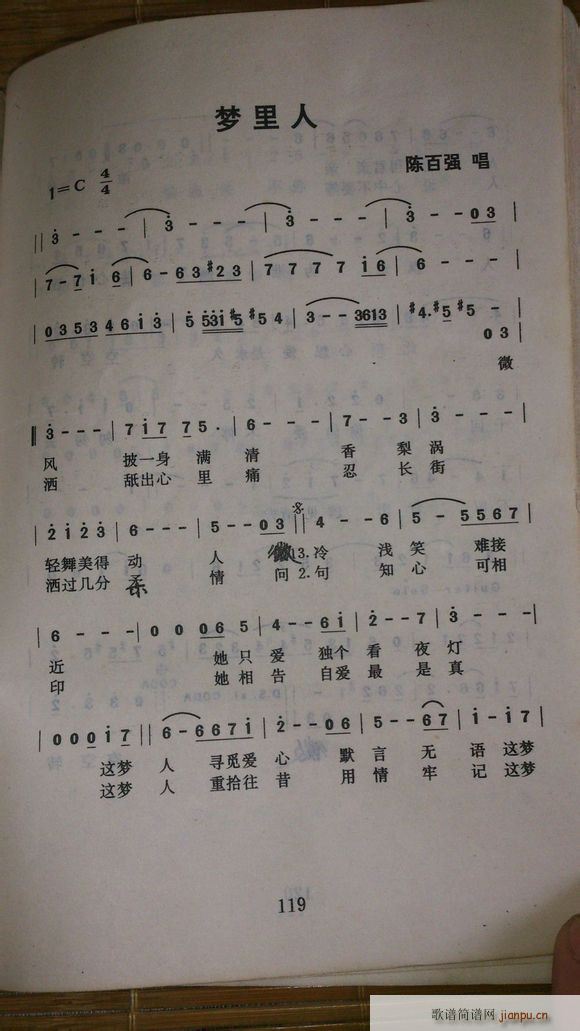 梦里人
陈百强 唱
1=C 4/4
‖ 3 - - - | 3 - - - | 3 - - - | 3 - - 0 3 |
| 7 - 7 i 6 | 6 - 6 3 #2 3 | 7 7 7 7 i 6 | 6 - - - |
| 0 3 5 3 4 6 i 3 | 5 531 #5 #5 5 4 | 3 - - 3613 | #4. #5 #5 - 0 3 |
微
‖ 3 - - - | 7 i 7 7 5. | 6 - - | 7 - 3 | 3 - - - |
风 披一身 满 清 香 梨 涡
洒 舐出心 里 痛 忍 长 街
| 2 i 2 3 | 6 - - - | 5 - - 0 3 ‖ 4 - - 6 | 5 - 5 5 6 7 |
轻舞美得 动 人 3.冷 浅 笑 难接
洒过几分 柔 情 问 2.句 知 心 可相
| 6 - - - | 0 0 0 6 5 | 4 - - 6 i | 2 - - 7 | 3 - - - |
近 她 只 爱 独个 看 夜 灯
印 她 相 告 自爱 最 是 真
| 0 0 0 i 7 ‖ 6 - 6 6 7 i | 2 - - 0 6 | 5 - - 6 7 | i - i 7 |
这梦 人 寻觅爱 心 默 言 无 语 这梦
这梦 人 重拾往 昔 用 情 牢 记 这梦
119
歌谱简谱网 jianpu.cn